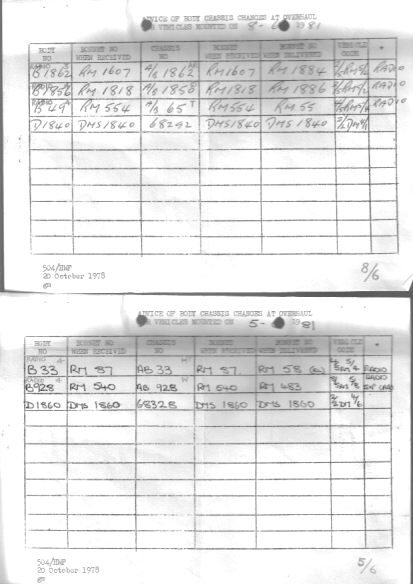 ADVICE OF BODY CHASSIS CHANGES AT OVERHAUL
VEHICLES MOUNTED ON 8-6 1981
BODY NO BONNET NO WHEN RECEIVED CHASSIS NO BONNET NO WHEN RECEIVED BONNET NO WHEN DELIVERED VEHICLE CODE *
RADIO B1862 RM1607 A/B 1862 RM1607 RM 1884 RADIO
RADIO B1856 RM 1818 A/B 1858 RM1818 RM 1886 RADIO
RADIO B49 RM 554 A/B 65 RM554 RM 55 RADIO
D1840 DMS 1840 68292 DMS1840 DMS 1840
504/HMF
20 October 1978
8/6
ADVICE OF BODY CHASSIS CHANGES AT OVERHAUL
VEHICLES MOUNTED ON 5-6 1981
BODY NO BONNET NO WHEN RECEIVED CHASSIS NO BONNET NO WHEN RECEIVED BONNET NO WHEN DELIVERED VEHICLE CODE *
RADIO B 33 RM 87 AB 33 RM 87. RM 58 RADIO
RADIO B928 RM 540 AB 928 RM 540 RM 483 RADIO
D1860 DMS 1860 68328 DMS 1860 DMS 1860
504/HMF
20 October 1978
5/6